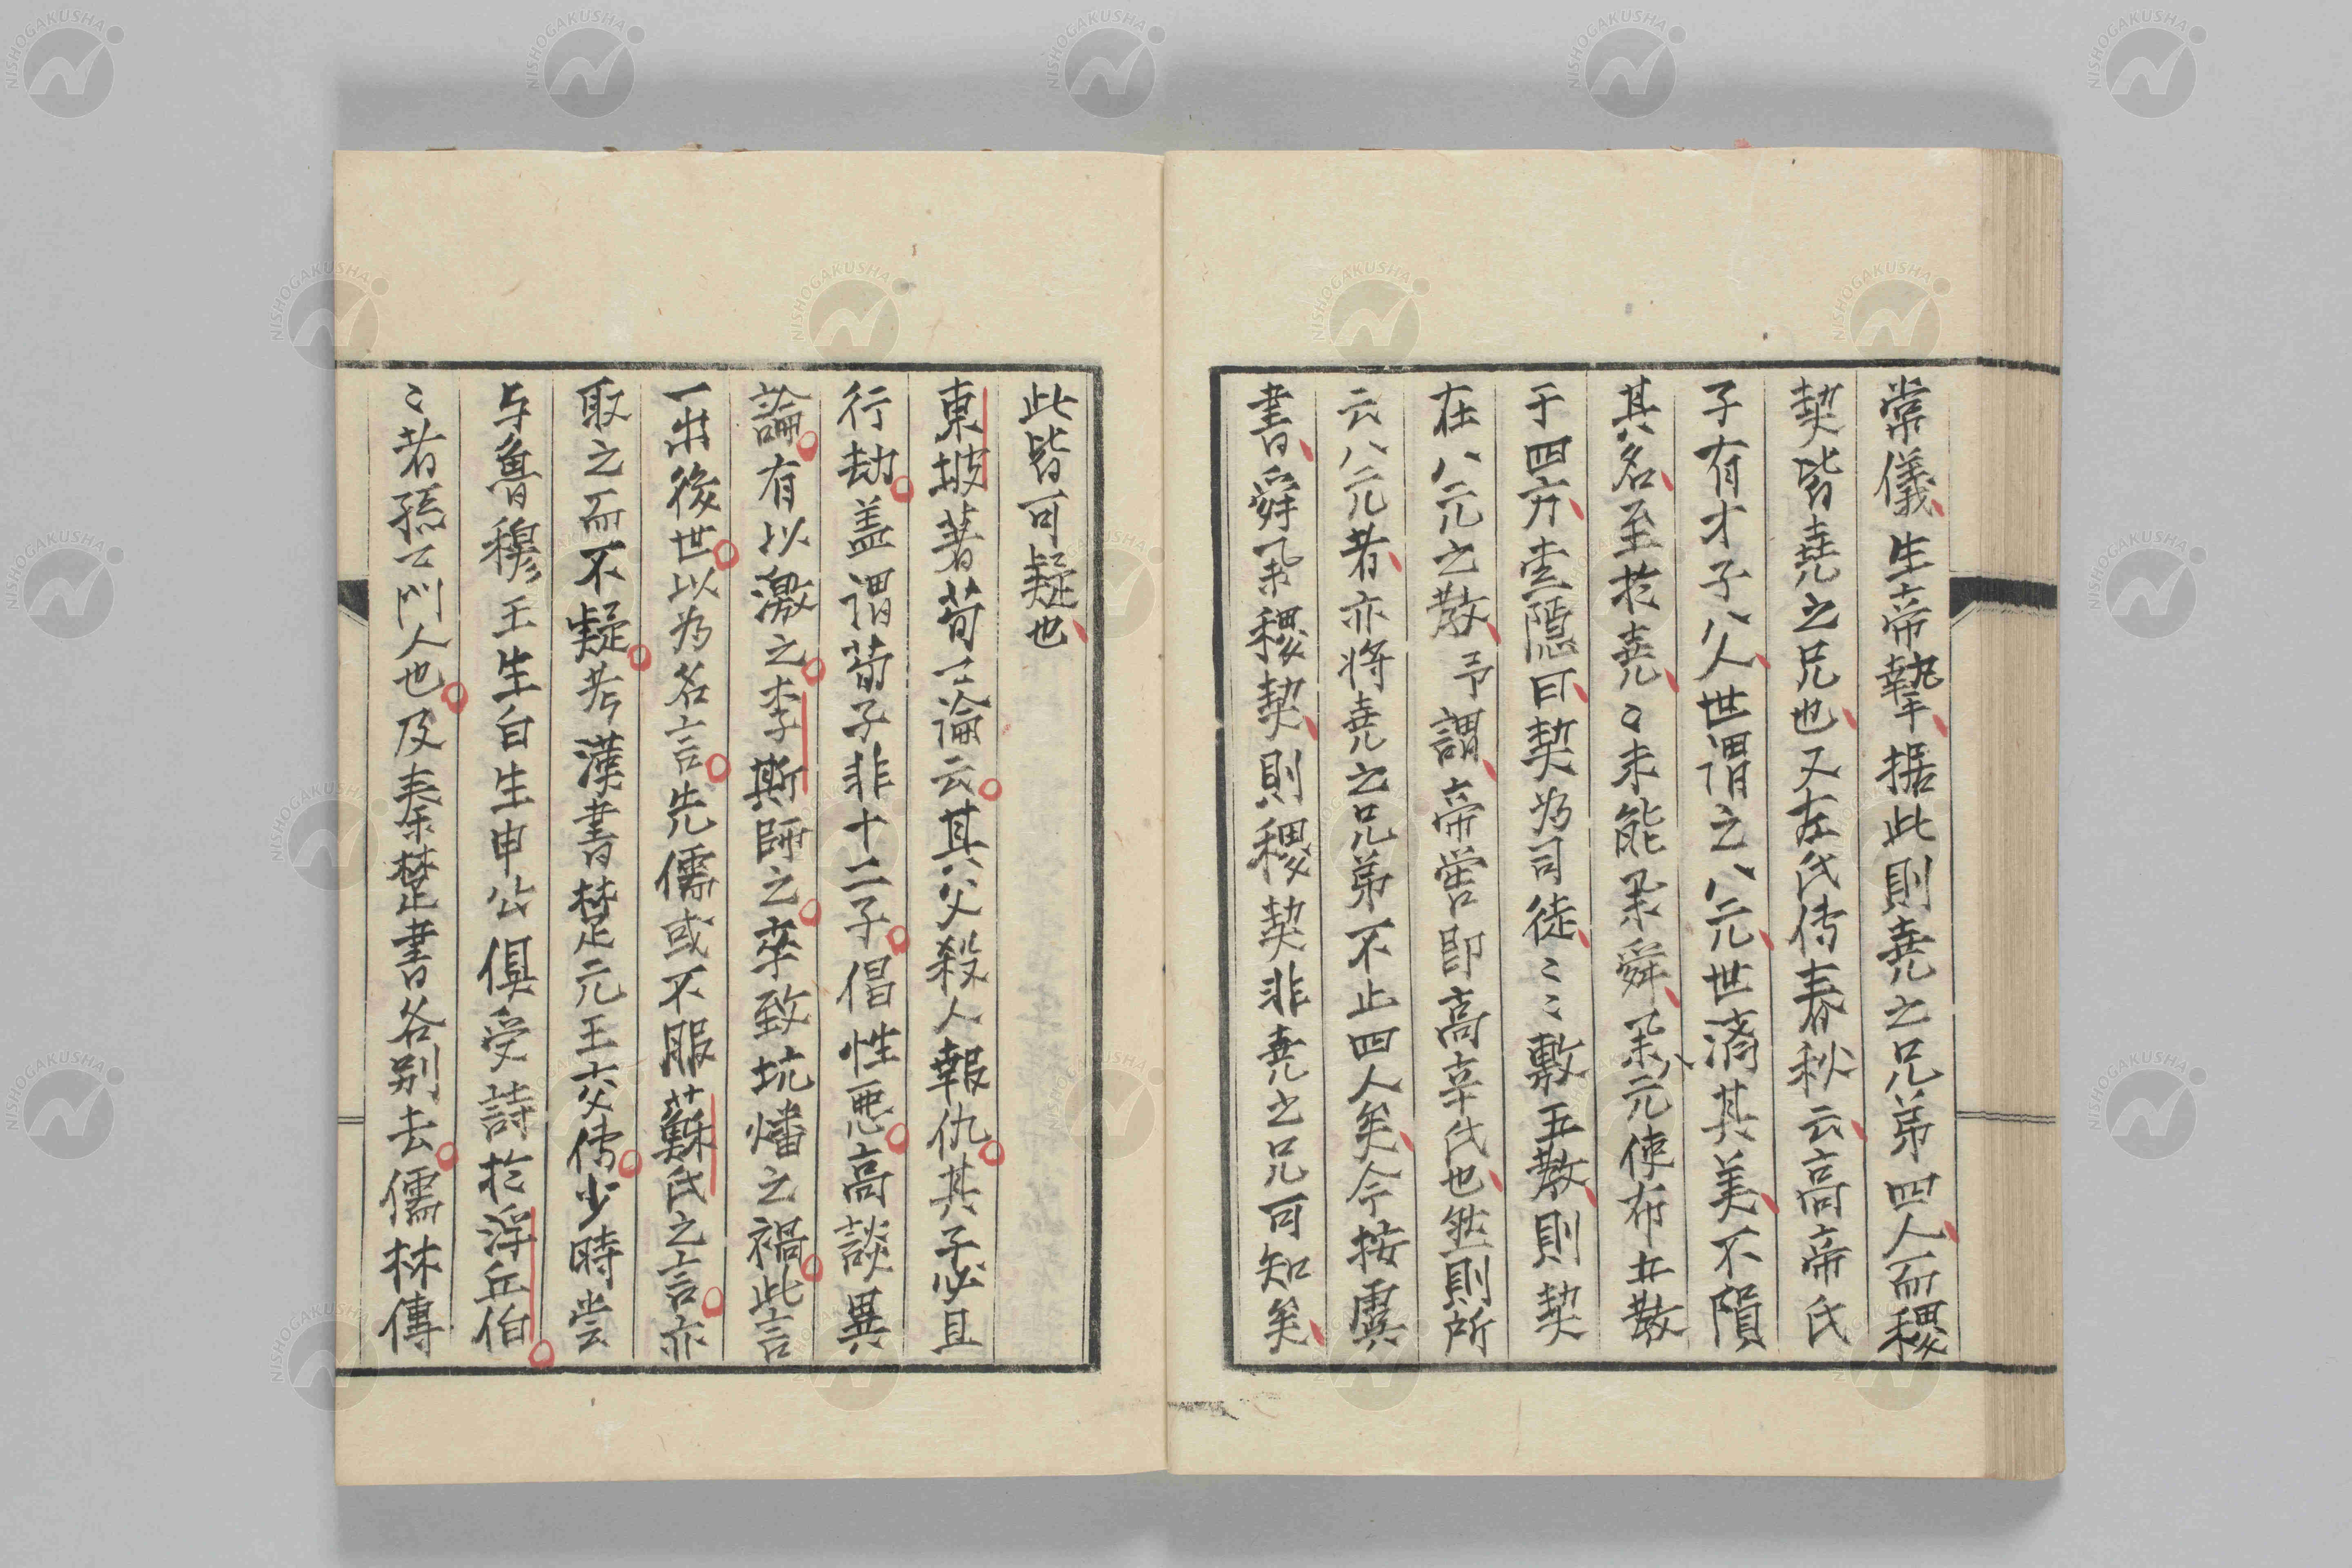 常儀生帝摯据此則堯之兄弟四人而稷
契皆堯之兄也又左氏传春秋云高帝氏
子有才子八人世谓之八元世済其美不隕
其名至於堯〻未能舉舜舉八元使布五教
于四方杜隱曰契为司徒〻〻敷五教則契
在八元之教予謂帝嚳即高辛氏也然則所
云八元者亦将堯之兄弟不止四人矣今按虞
書舜舉稷契則稷契非堯之兄可知矣
此皆可疑也
東坡著荀子論云其父殺人報仇其子必且
行劫盖谓荀子非十二子倡性悪高談異
論有以激之李斯師之卒致坑燔之禍此言
一出後世以为名言先儒或不服蘇氏之言亦
取之而不疑考漢書楚元王交传少時尝
与魯穆王生白生申公俱受詩於浮丘伯
〻者孫云门人也及秦焚書各别去儒林傳